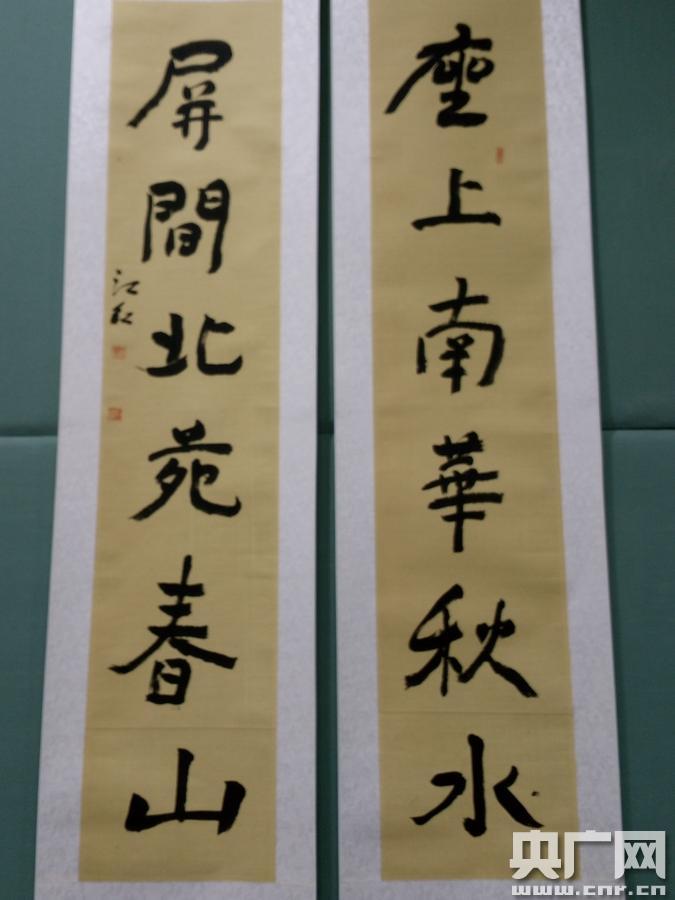 座上南華秋水
屏間北苑春山
江紅
央广网
www.cnr.cn